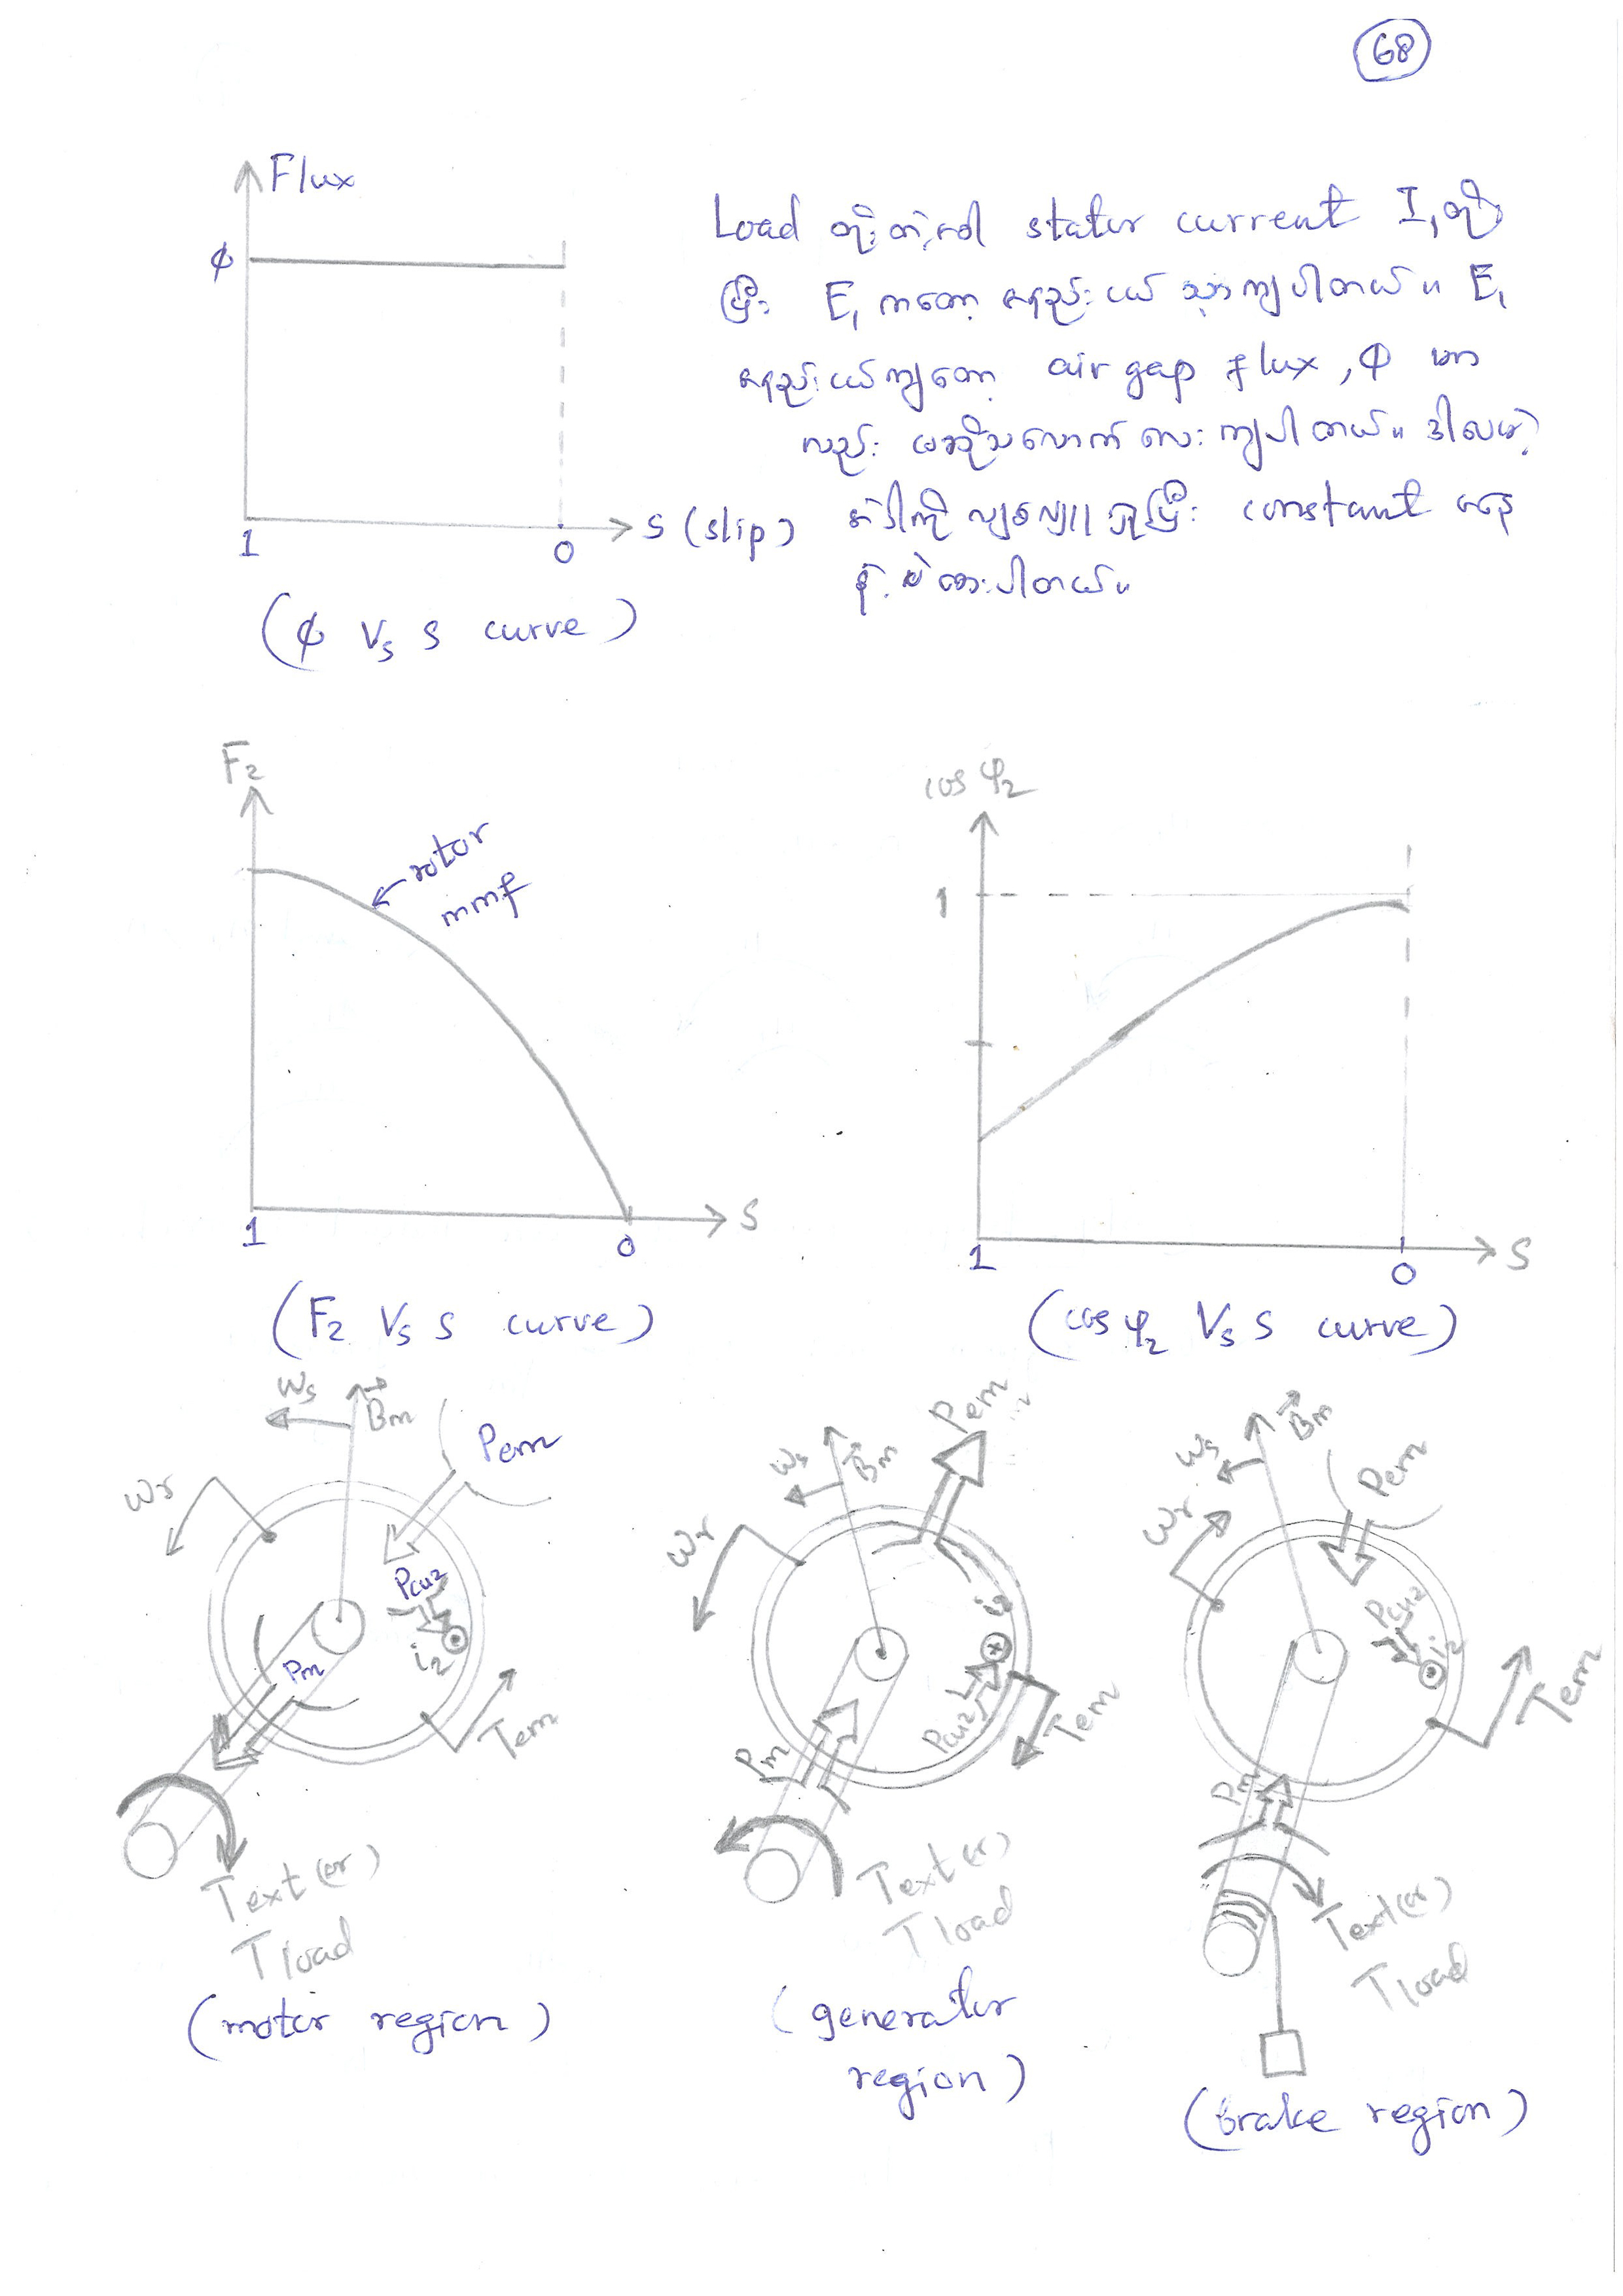 68
Flux
ϕ
1
0
S (slip)
(ϕ Vs S curve)
Load တိုးတဲ့ခါ stator current I₁ တိုး
ပြီး E₁ ကတော့ နည်းငယ် သွားကျပါတယ်။ E₁
နည်းငယ်ကျတော့ air gap flux, ϕ ဟာ
လည်း မဆိုသလောက်လေး ကျပါတယ်။ ဒါပေမဲ့
ဒါကို လျစ်လျူရှုပြီး constant အနေ
နဲ့ ထားပါတယ်။
F₂
rotor
mmf
1
0
S
(F₂ Vs S curve)
cos φ₂
1
1
0
S
(cos φ₂ Vs S curve)
ws
Bm
Pem
wr
Pcu2
i₂
Pm
Tem
Text (or)
Tload
(motor region)
Pem
ws
Bm
wr
i₂
Pcu2
Tem
Pm
Text (or)
Tload
(generator
region)
Bm
ws
Pem
wr
Pcu2
i₂
Tem
Pm
Text (or)
Tload
(brake region)